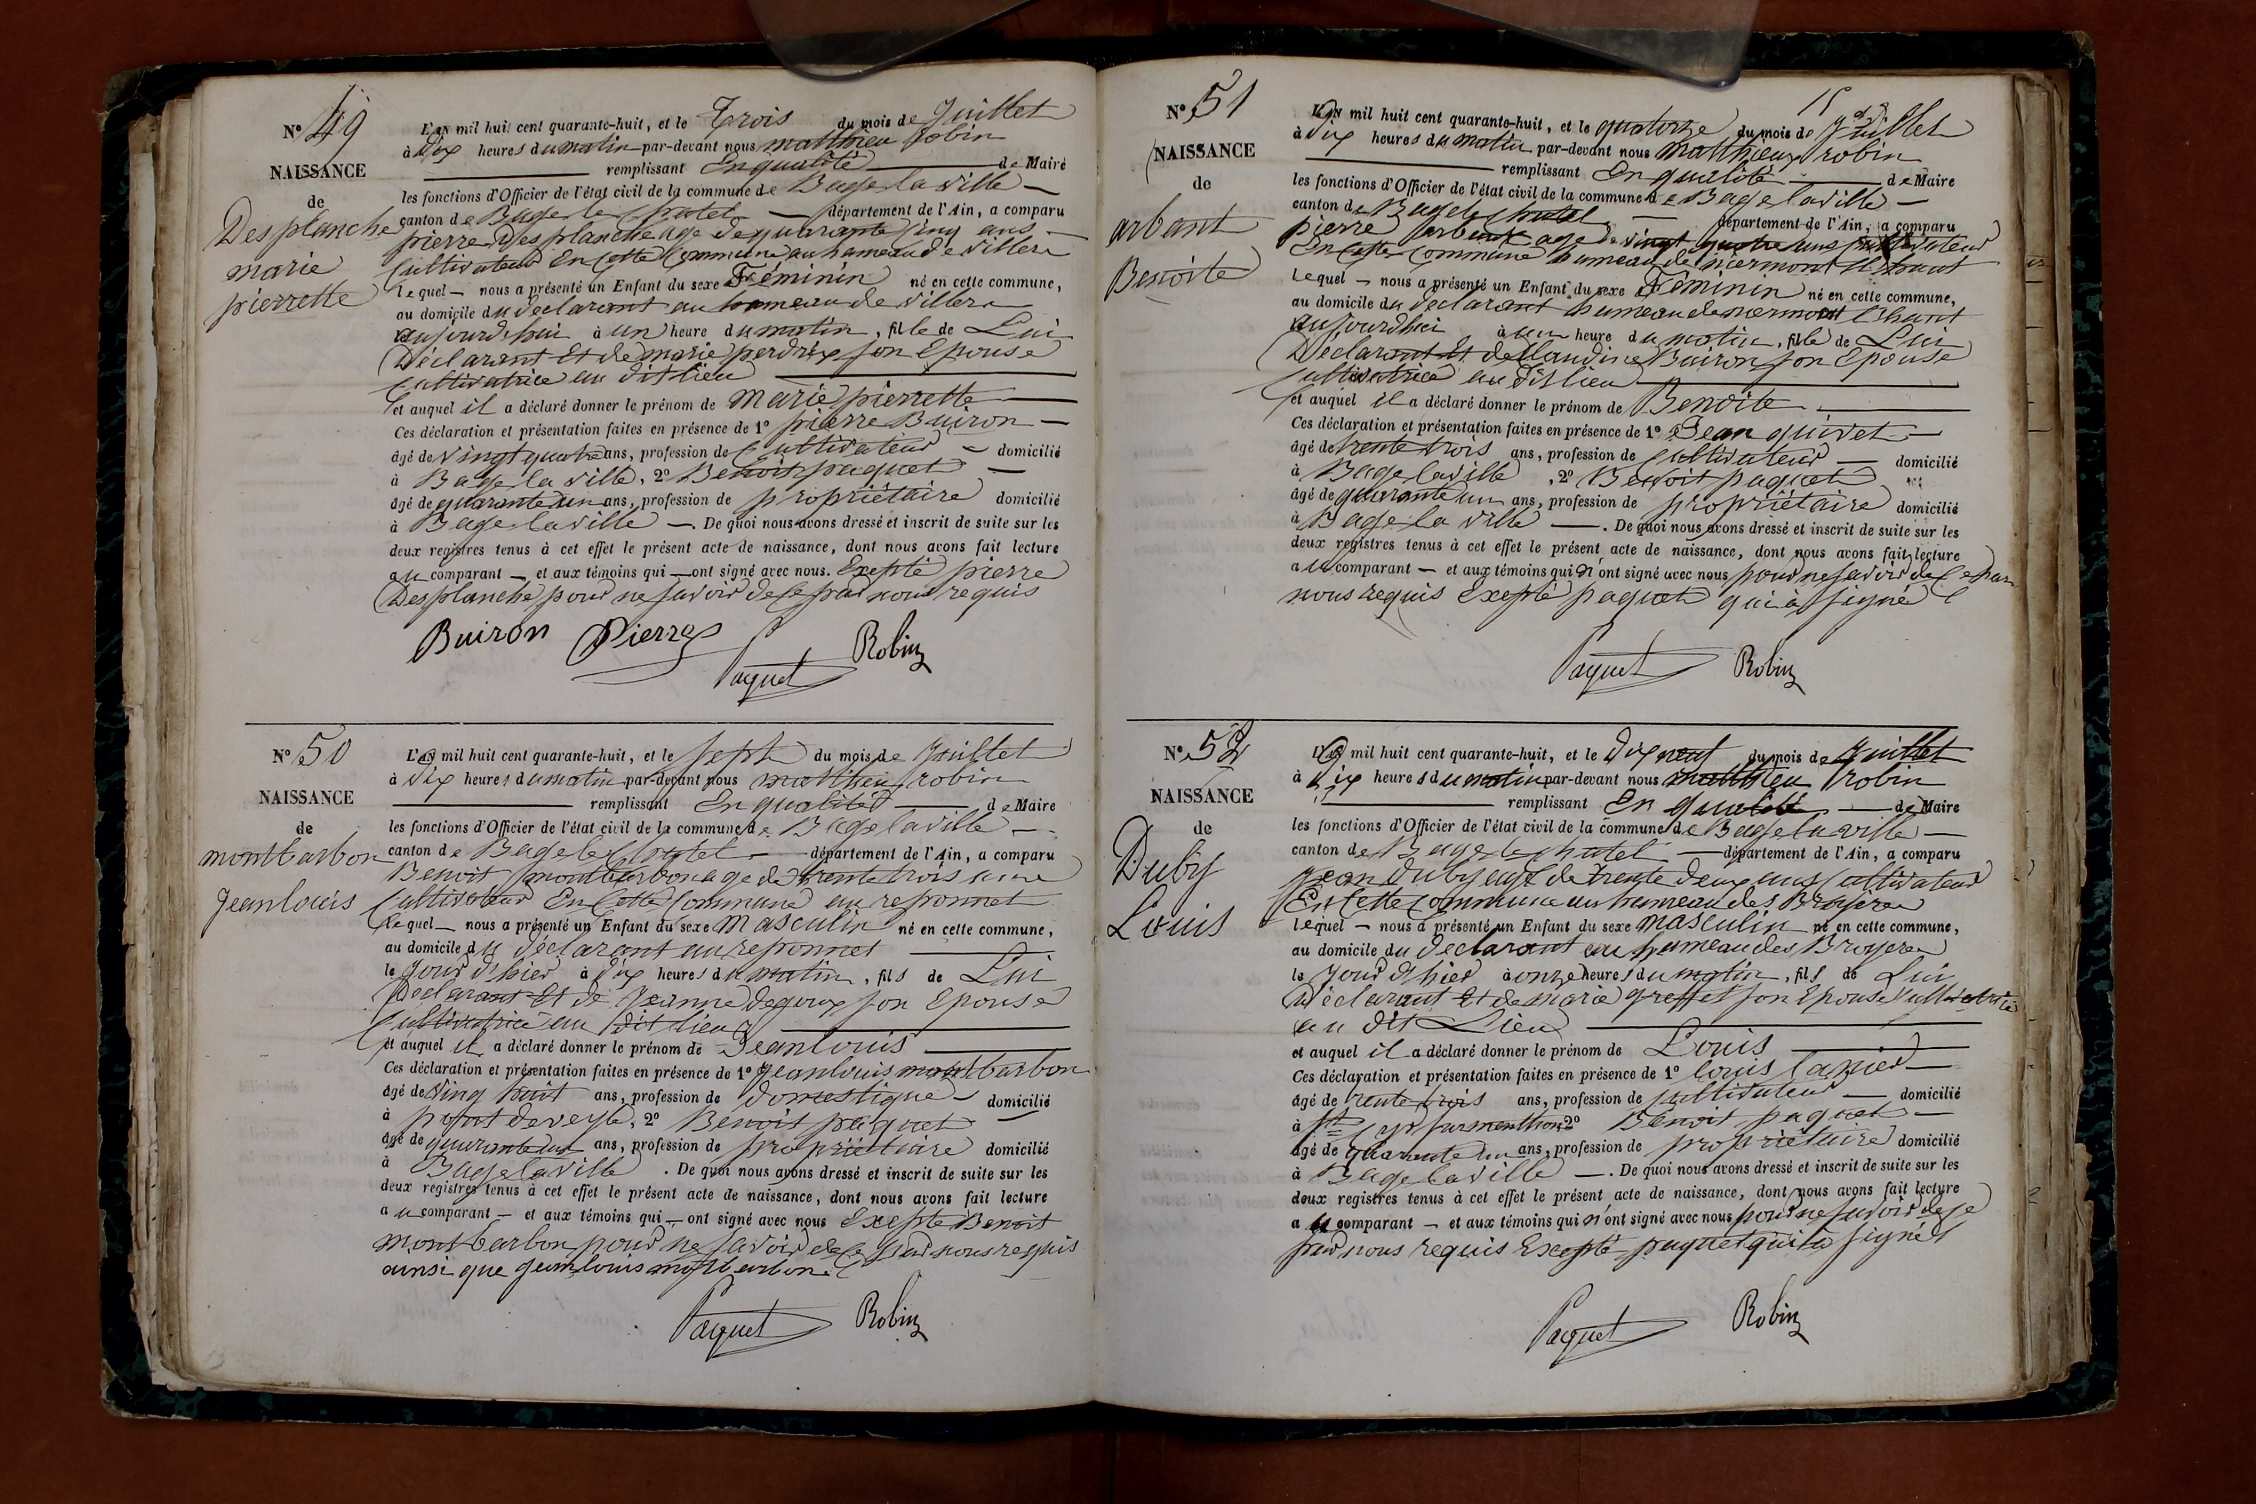 N° 49
NAISSANCE
de
Desplanche
marie
pierrette
L'an mil huit cent quarante-huit, et le Trois du mois de Juillet
à Dix heures du matin par-devant nous matthieu robin
remplissant En qualité de Maire
les fonctions d'Officier de l'état civil de la commune de Bage la ville
canton de Bage le Chatel département de l'Ain, a comparu
pierre Desplanche age de quarante Cinq ans
Cultivateur En Cette Commune au hameau de
lequel nous a présenté un Enfant du sexe Féminin né en cette commune,
au domicile du declarant au hameau de
aujourdhui à un heure du matin, fille de Lui
Déclarant Et de marie perdrix son Epouse
Cultivatrice au dit lieu
et auquel il a déclaré donner le prénom de Marie pierrette
Ces déclaration et présentation faites en présence de 1° pierre Buiron
âgé de vingt quatre ans, profession de Cultivateur domicilié
à Bage la ville, 2° Benoit paquet
âgé de quarante un ans, profession de propriétaire domicilié
à Bage la ville. De quoi nous avons dressé et inscrit de suite sur les
deux registres tenus à cet effet le présent acte de naissance, dont nous avons fait lecture
au comparant et aux témoins qui ont signé avec nous. Exepté pierre
Desplanche pour ne savoir de ce par nous requis
Buiron Pierre
Paquet Robin
N° 50
NAISSANCE
de
montbarbon
Jeanlouis
L'an mil huit cent quarante-huit, et le sept du mois de Juillet
à dix heures du matin par-devant nous matthieu robin
remplissant En qualité de Maire
les fonctions d'Officier de l'état civil de la commune de Bage la ville
canton de Bage le Chatel département de l'Ain, a comparu
Benoit montbarbon age de trente trois ans
Cultivateur En Cette Commune au
lequel nous a présenté un Enfant du sexe Masculin né en cette commune,
au domicile du déclarant au
le Jour d'hier à dix heures du matin, fils de Lui
Déclarant Et de Jeanne degoux son Epouse
Cultivatrice au dit lieu
et auquel il a déclaré donner le prénom de Jeanlouis
Ces déclaration et présentation faites en présence de 1° Jeanlouis montbarbon
âgé de vingt huit ans, profession de domestique domicilié
à pont de veyle, 2° Benoit paquet
âgé de quarante un ans, profession de propriétaire domicilié
à Bage la ville. De quoi nous avons dressé et inscrit de suite sur les
deux registres tenus à cet effet le présent acte de naissance, dont nous avons fait lecture
au comparant et aux témoins qui ont signé avec nous Exepté Benoit
montbarbon pour ne savoir de ce par nous requis
ainsi que Jeanlouis montbarbon
Paquet Robin
N° 51
NAISSANCE
de
arbant
Benoite
15
L'an mil huit cent quarante-huit, et le quatorze du mois de Juillet
à Dix heures du matin par-devant nous Matthieu robin
remplissant En qualité de Maire
les fonctions d'Officier de l'état civil de la commune de Bage la ville
canton de Bage le chatel département de l'Ain, a comparu
pierre arbant age de vingt quatre ans Cultivateur
En Cette Commune hameau de
lequel nous a présenté un Enfant du sexe Féminin né en cette commune,
au domicile du declarant hameau de
aujourdhui à un heure du matin, fille de Lui
Déclarant Et de Claudine Buiron son Epouse
Cultivatrice au Dit lieu
et auquel il a déclaré donner le prénom de Benoite
Ces déclaration et présentation faites en présence de 1° Jean quivet
âgé de trente trois ans, profession de Cultivateur domicilié
à Bage la ville, 2° Benoit paquet
âgé de quarante un ans, profession de propriétaire domicilié
à Bage la ville. De quoi nous avons dressé et inscrit de suite sur les
deux registres tenus à cet effet le présent acte de naissance, dont nous avons fait lecture
au comparant et aux témoins qui n'ont signé avec nous pour ne savoir de Ce par
nous requis Exepté paquet qui à signé
Paquet Robin
N° 52
NAISSANCE
de
Duby
Louis
L'an mil huit cent quarante-huit, et le Dix neuf du mois de Juillet
à Dix heures du matin par-devant nous matthieu robin
remplissant En qualité de Maire
les fonctions d'Officier de l'état civil de la commune de Bage la ville
canton de Bage le chatel département de l'Ain, a comparu
Jean Duby age de trente deux ans Cultivateur
En Cette Commune au hameau des Broyere
lequel nous a présenté un Enfant du sexe Masculin né en cette commune,
au domicile du declarant au hameau des Broyere
le Jour d'hier à onze heures du matin, fils de Lui
Déclarant Et de marie greffet son Epouse Cultivatrice
au dit Lieu
et auquel il a déclaré donner le prénom de Louis
Ces déclaration et présentation faites en présence de 1° louis
âgé de trente trois ans, profession de Cultivateur domicilié
à St Cyr sur menthon, 2° Benoit paquet
âgé de quarante un ans, profession de propriétaire domicilié
à Bage la ville. De quoi nous avons dressé et inscrit de suite sur les
deux registres tenus à cet effet le présent acte de naissance, dont nous avons fait lecture
au comparant et aux témoins qui n'ont signé avec nous pour ne savoir de ce
par nous requis Excepté paquet qui a signé
Paquet Robin